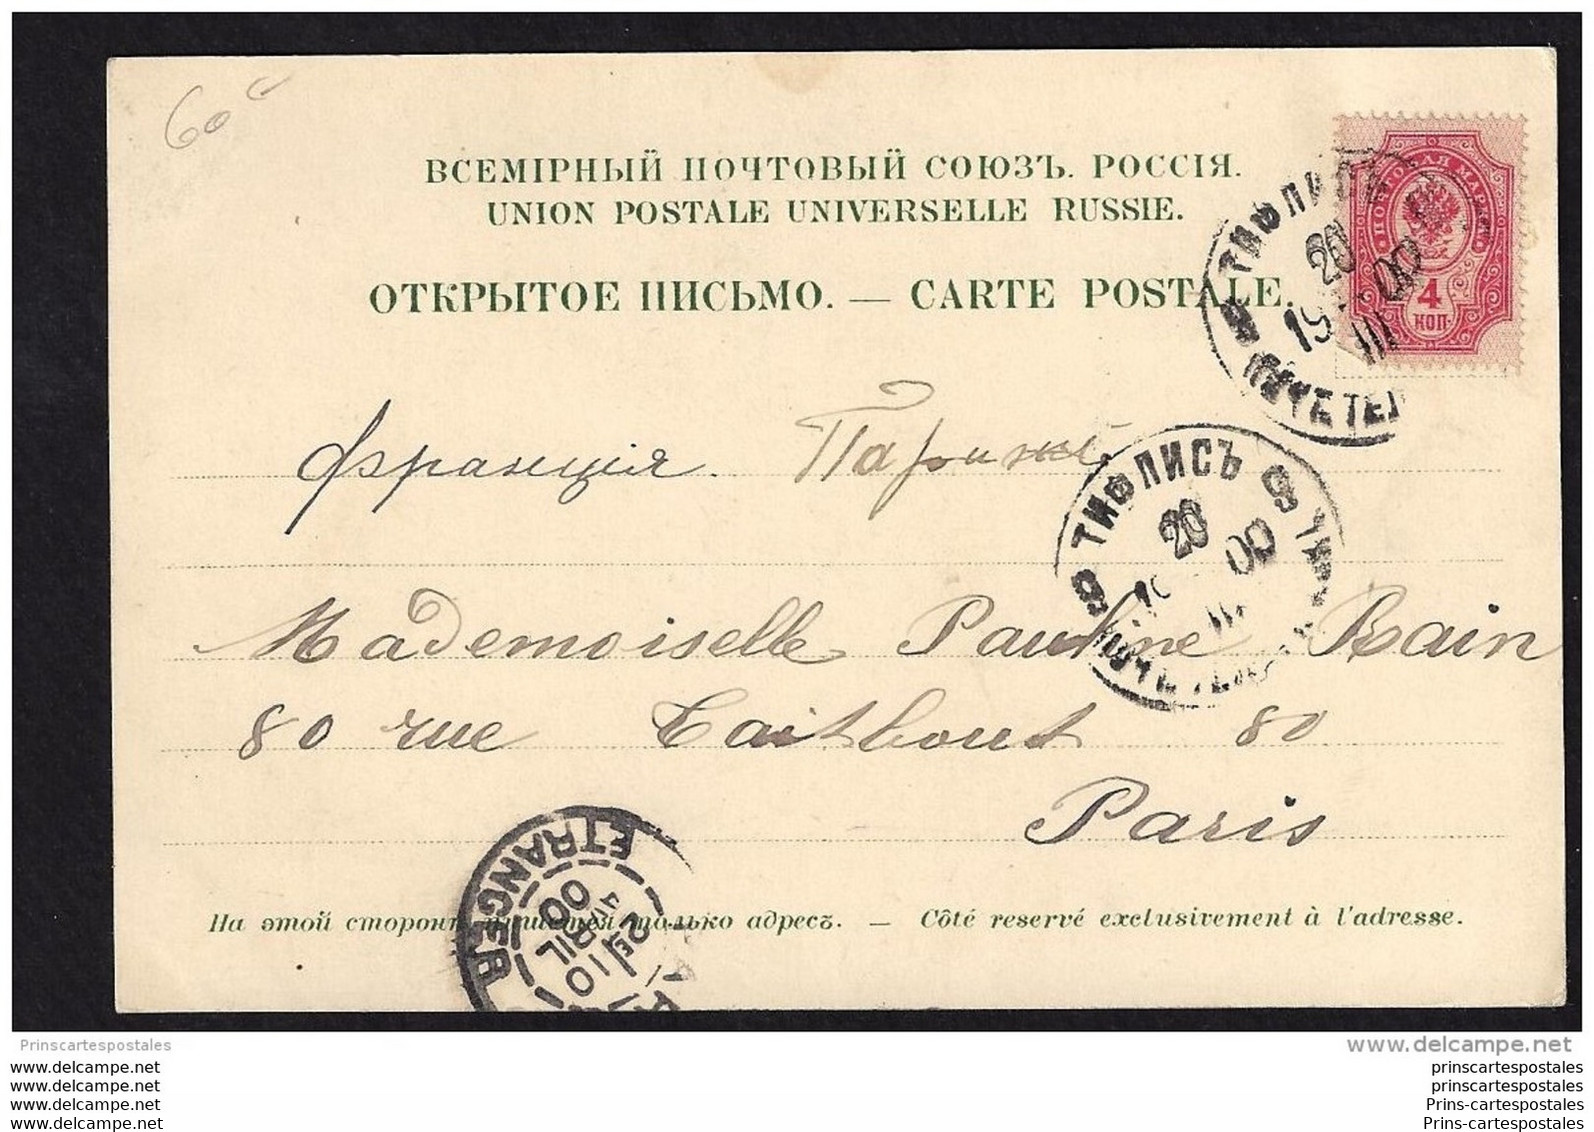 60 c
ВСЕМІРНЫЙ ПОЧТОВЫЙ СОЮЗЪ. РОССІЯ.
UNION POSTALE UNIVERSELLE RUSSIE.
ОТКРЫТОЕ ПИСЬМО. — CARTE POSTALE.
ПОЧТОВАЯ МАРКА
4
КОП.
ТИФЛИСЪ
20
19 00
III
ПОЧ. ТЕЛ
Франція. Парижъ
ТИФЛИСЪ
20
19 00
III
ПОЧ. ТЕЛ
Mademoiselle Pauline Rain
80 rue Taitbout 80
Paris
ETRANGER
10
AVRIL
00
На этой сторонѣ пишется только адресъ. — Côté reservé exclusivement à l'adresse.
Prinscartespostales
www.delcampe.net
www.delcampe.net
www.delcampe.net
www.delcampe.net
www.delcampe.net
prinscartespostales
prinscartespostales
Prins-cartespostales
Prins-cartespostales